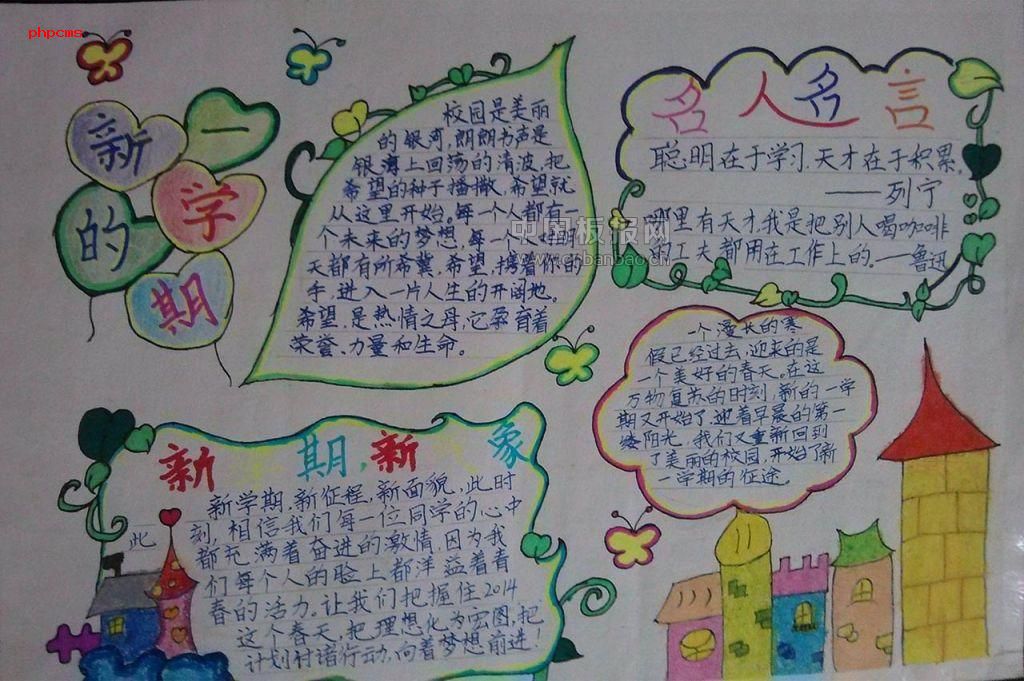 phpcms
新
一
的
学
期
校园是美丽
的银河,朗朗书声是
银海上回荡的清波,把
希望的种子播撒,希望就
从这里开始。每一个人都有一
个未来的梦想,每一个人对明
天都有所希冀,希望,携着你的
手,进入一片人生的开阔地。
希望,是热情之母,它孕育着
荣誉、力量和生命。
中国板报网
www.cnbanbao.cn
名人名言
聪明在于学习,天才在于积累。
——列宁
哪里有天才,我是把别人喝咖啡
的工夫都用在工作上的。——鲁迅
一个漫长的寒
假已经过去,迎来的是
一个美好的春天。在这
万物复苏的时刻,新的一学
期又开始了,迎着早晨的第一
缕阳光,我们又重新回到
了美丽的校园,开始了新
一学期的征途。
新学期,新气象
新学期,新征程,新面貌,此时
此刻,相信我们每一位同学的心中
都充满着奋进的激情,因为我
们每个人的脸上都洋溢着青
春的活力。让我们把握住2014
这个春天,把理想化为宏图,把
计划付诸行动,向着梦想前进!